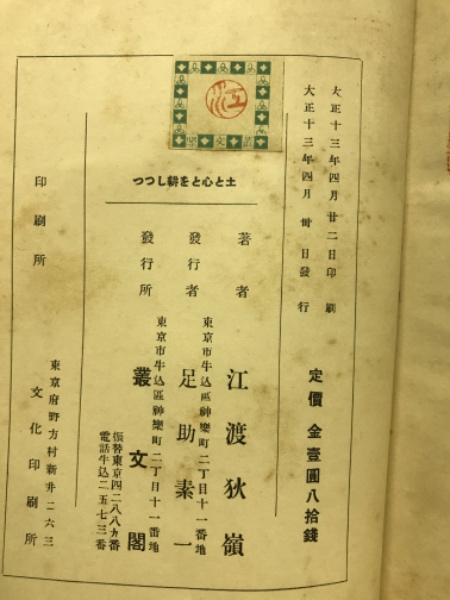 大正十三年四月廿二日印刷
大正十三年四月卅日發行
定價 金壹圓八拾錢
江
叢文閣
土と心とを耕しつつ
著者 江渡狄嶺
東京市牛込區神樂町二丁目十一番地
發行者 足助素一
東京市牛込區神樂町二丁目十一番地
發行所 叢文閣
振替東京四二八八九番
電話牛込二五七三番
東京府野方村新井二六三
印刷所 文化印刷所